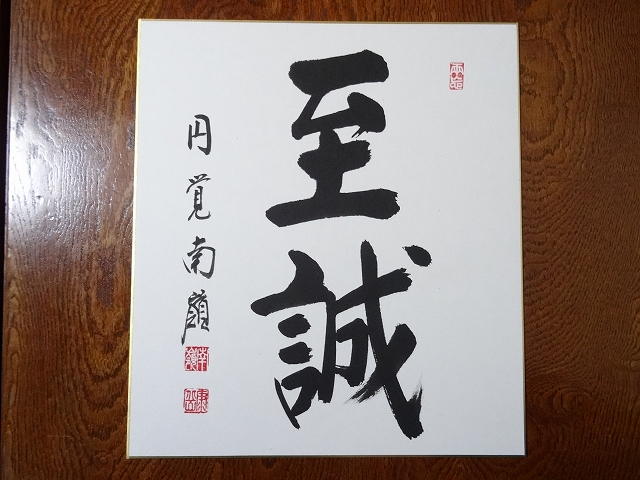 至誠
円覚南嶺